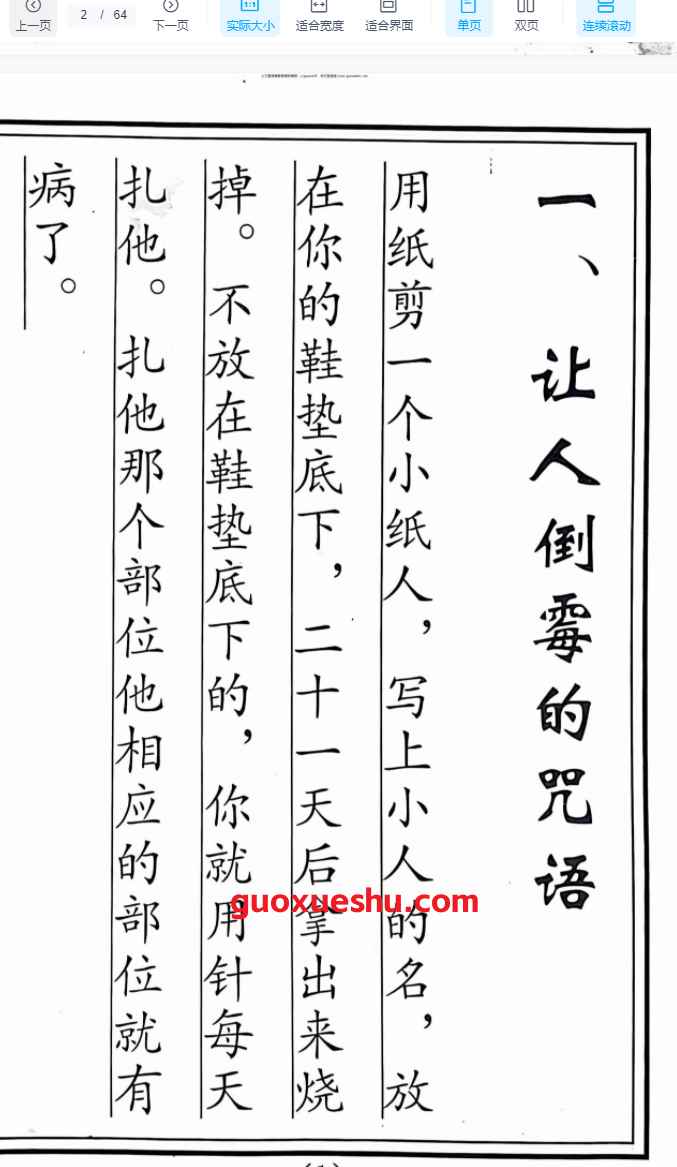 上一页
2 / 64
下一页
1:1
实际大小
适合宽度
适合界面
单页
双页
连续滚动
一、让人倒霉的咒语
用纸剪一个小纸人，写上小人的名，放
在你的鞋垫底下，二十一天后拿出来烧
掉。不放在鞋垫底下的，你就用针每天
扎他。扎他那个部位他相应的部位就有
病了。
guoxueshu.com